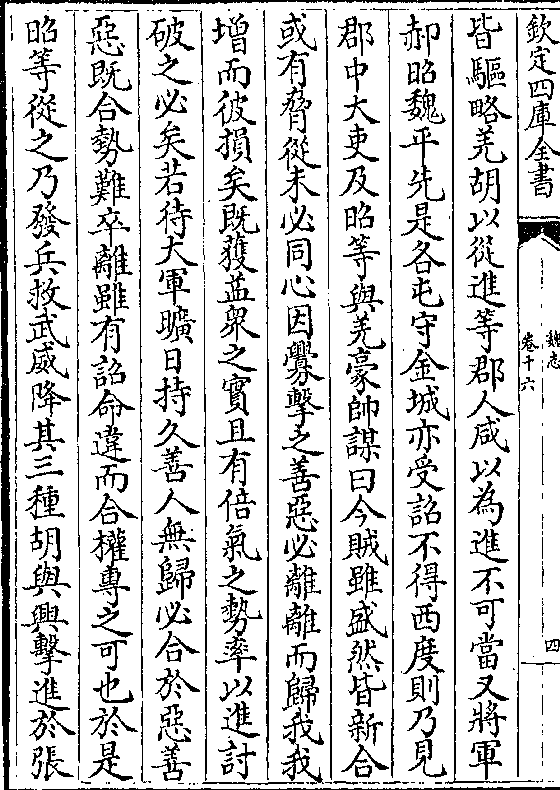 欽定四庫全書
魏志
卷十六
四
皆驅略羌胡以從進等郡人咸以為進不可當又將軍
郝昭魏平先是各屯守金城亦受詔不得西度則乃見
郡中大吏及昭等與羌豪帥謀曰今賊雖盛然皆新合
或有脅從未必同心因釁擊之善惡必離離而歸我我
増而彼損矣既獲益衆之實且有倍氣之勢率以進討
破之必矣若待大軍曠日持久善人無歸必合於惡善
惡既合勢難卒離雖有詔命違而合權専之可也於是
昭等從之乃發兵救武威降其三種胡與興擊進於張